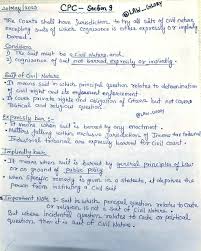 20/May/2023 CPC - Section 9 @Law_Galaxy
The Courts shall have Jurisdiction to try all suit of Civil Nature,
excepting suits of which Cognizance is either expressly or impliedly
barred.
Conditions
1. The Suit must be a Civil Nature and
2. Cognizance of suit not barred expressly or impliedly.
Suit of Civil Nature
• It means Suit in which principal question relates to determination
of civil right and its enforcement.
• It covers private rights and obligation of Citizens but not cover
Political and religious question.
Expressly barred
• It means when suit is barred by any enactment.
• Matters falling within exclusive Jurisdiction of
Industrial tribunal are expressly barred for civil court
Impliedly
• It means when Suit is barred by general principles of law
or on ground of public policy
• When specific remedy is given in a statute, it deprives the
person from instituting a Civil Suit
Important Note :- Suit in which principal question relates to caste
or religion, is not a Suit of Civil Nature.
But where incidental question relates to caste or
question, then it is Suit of Civil Nature.